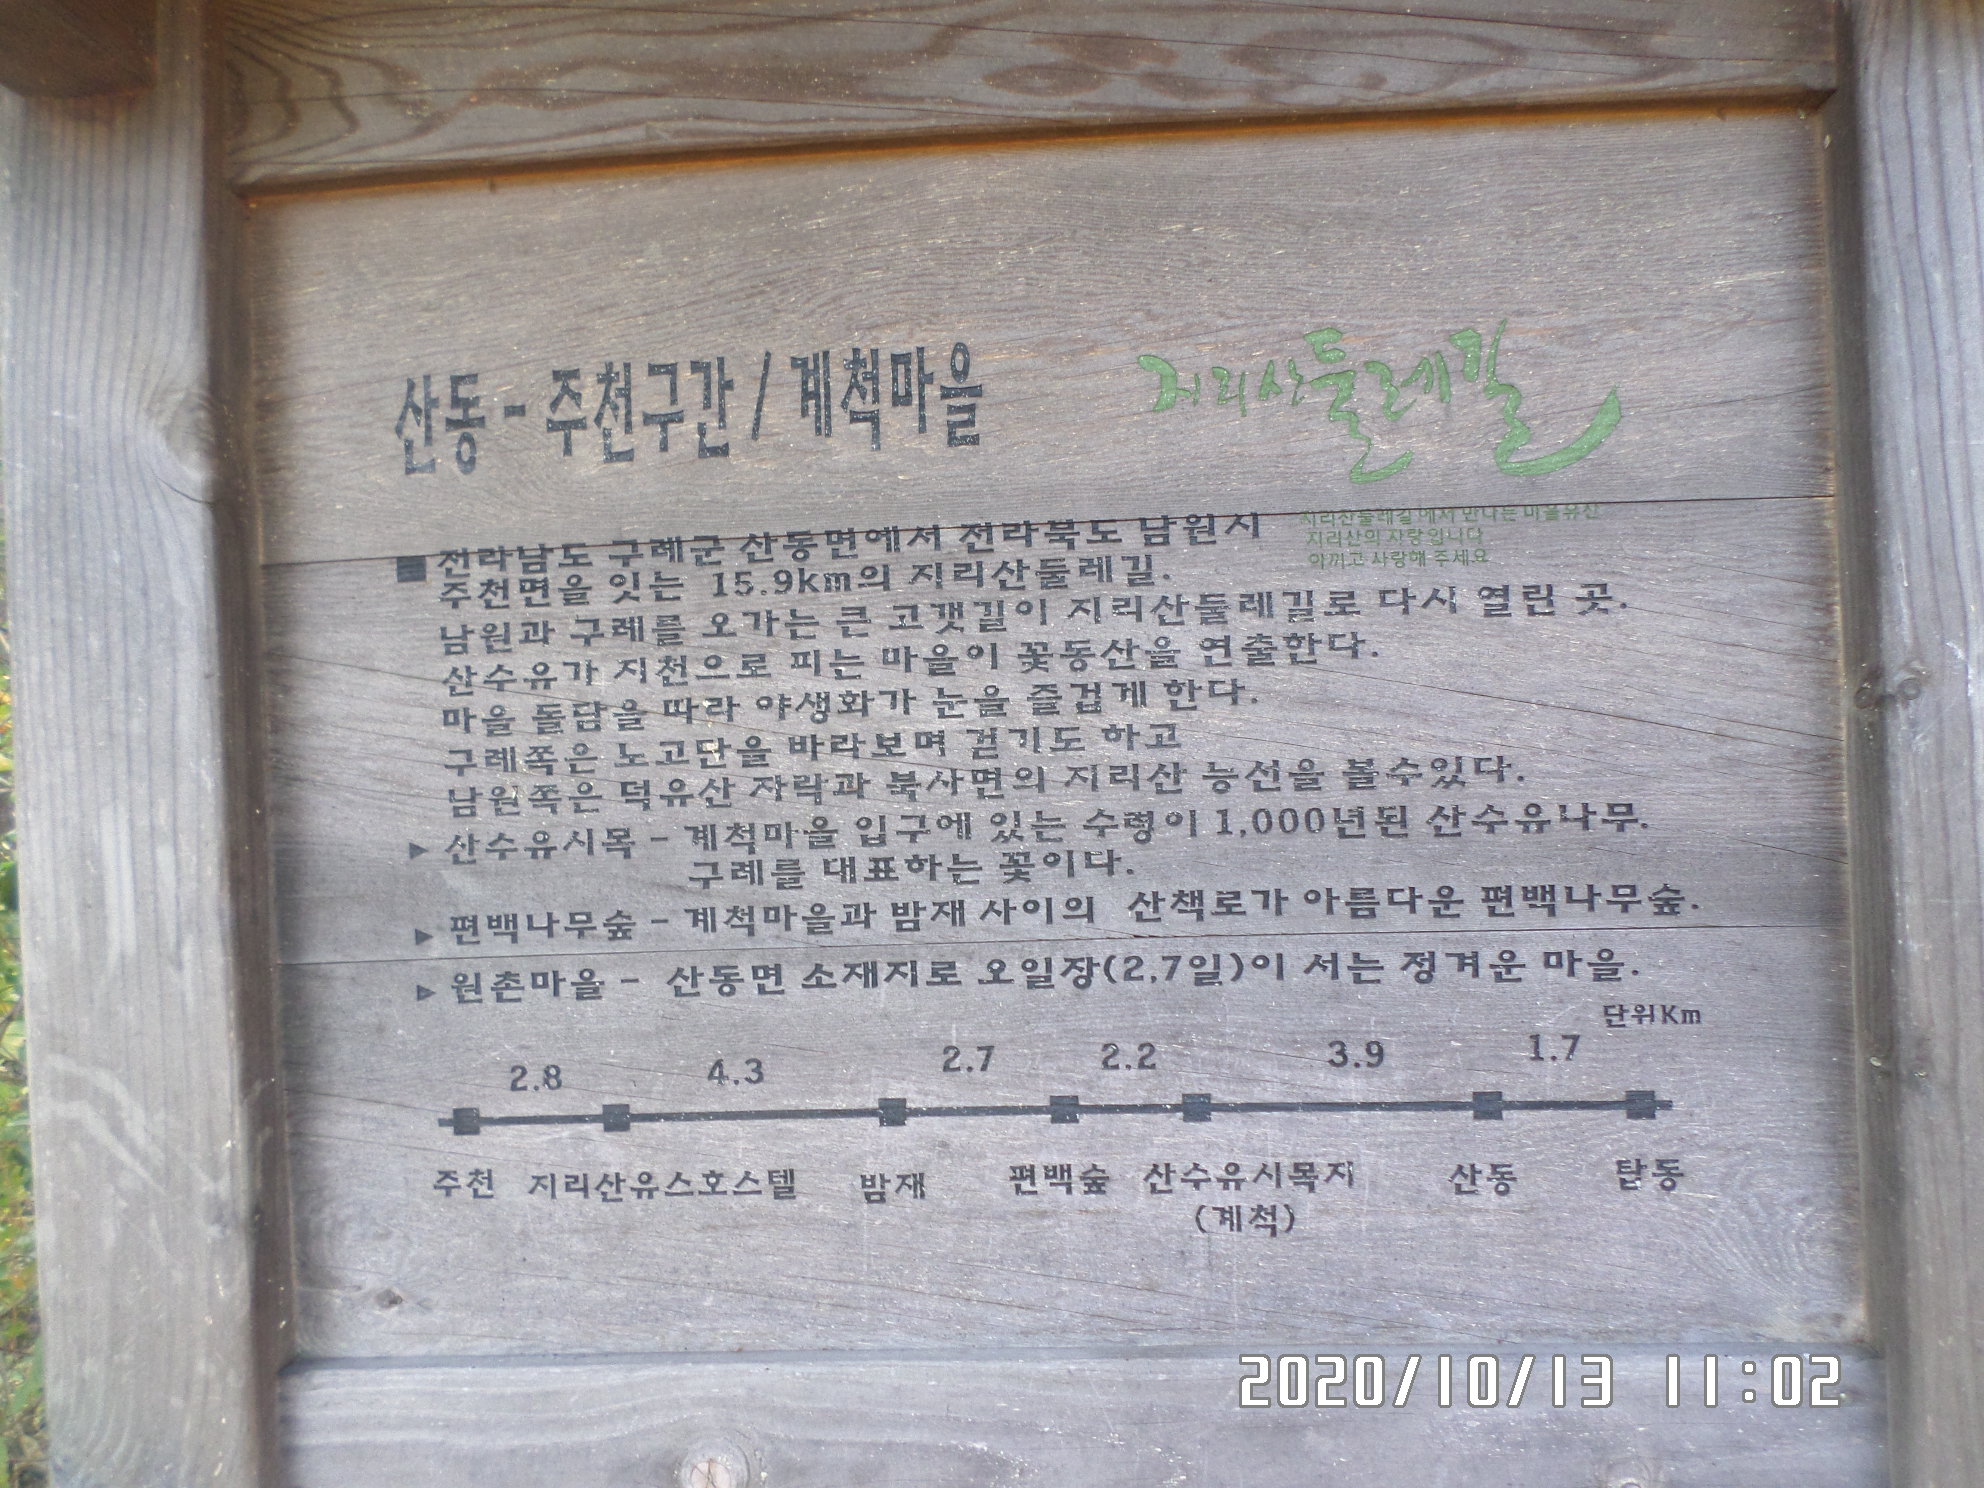 산동 - 주천구간 / 계척마을
지리산둘레길
지리산둘레길에서 만나는 마을유산
지리산의 자랑입니다
아끼고 사랑해 주세요
■ 전라남도 구례군 산동면에서 전라북도 남원시
주천면을 잇는 15.9km의 지리산둘레길.
남원과 구례를 오가는 큰 고갯길이 지리산둘레길로 다시 열린 곳.
산수유가 지천으로 피는 마을이 꽃동산을 연출한다.
마을 돌담을 따라 야생화가 눈을 즐겁게 한다.
구례쪽은 노고단을 바라보며 걷기도 하고
남원쪽은 덕유산 자락과 북사면의 지리산 능선을 볼수있다.
▶ 산수유시목 - 계척마을 입구에 있는 수령이 1,000년된 산수유나무.
구례를 대표하는 꽃이다.
▶ 편백나무숲 - 계척마을과 밤재 사이의 산책로가 아름다운 편백나무숲.
▶ 원촌마을 - 산동면 소재지로 오일장(2,7일)이 서는 정겨운 마을.
단위Km
2.8 4.3 2.7 2.2 3.9 1.7
주천 지리산유스호스텔 밤재 편백숲 산수유시목지 산동 탑동
(계척)
2020/10/13 11:02